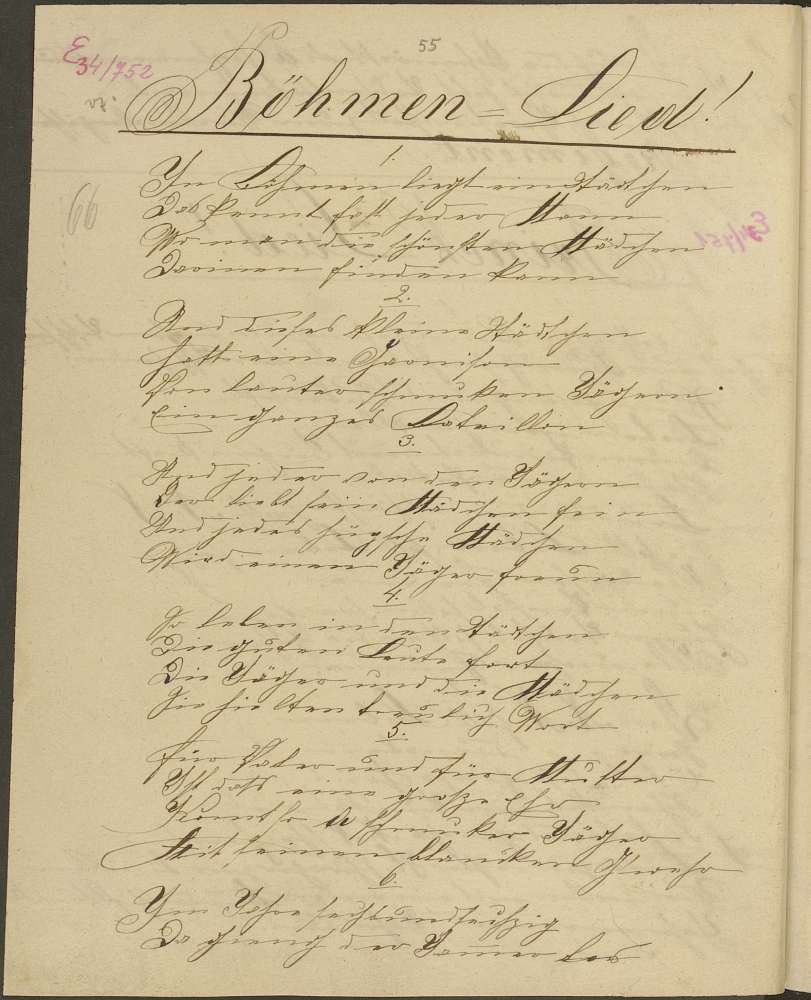 55
E
34/752
Böhmen=Lied!
1.
In Böhmen liegt ein Städtchen
Das kennt fast jeder Mann
Wo man die schönsten Mädchen
Darinen finden kann
2.
Und dieses kleine Städtchen
Hatt eine Garnison
Von lauter schmuken Jägern
Ein ganzes Bateillon
3.
Und jeder von den Jägern
Der liebt sein Mädchen fein
Und jedes hüpsche Mädchen
Wird einen Jäger freun
4.
So leben in den Städtchen
Die guten Leute fort
Die Jäger und die Mädchen
Sie hielten treulich Wort
5.
Für Vater und für Mutter
Ist dass eine große Ehr
Komt so A schmuker Jäger
Mit seinem blanken Gwehr
6.
Im Jahre sechsundsechzig
Da gieng der Jammer los
66